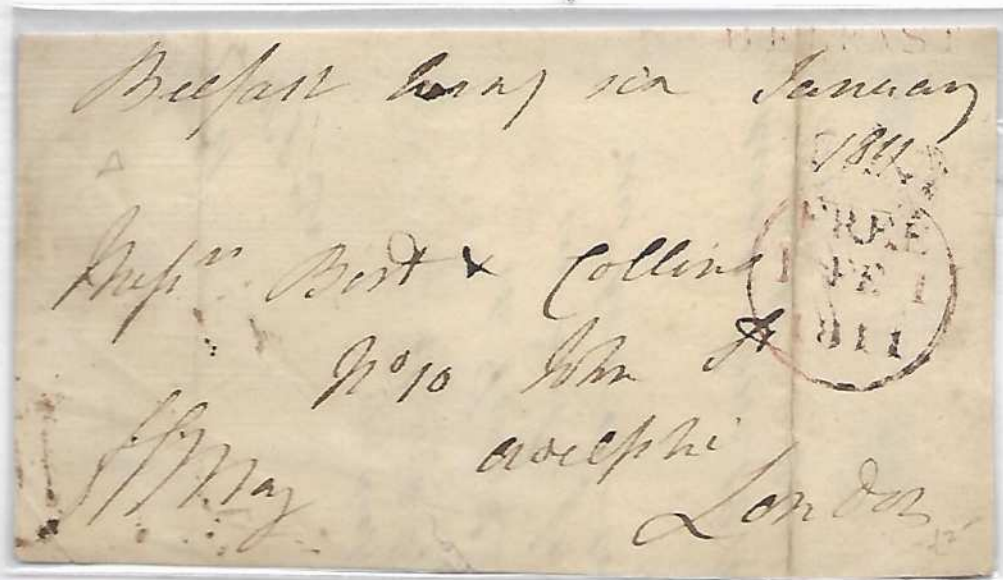 BELFAST
Belfast twenty six January
1811
FREE
FE 1
1811
Messrs Best & Collins
No 10 John St
Adelphi
London
May